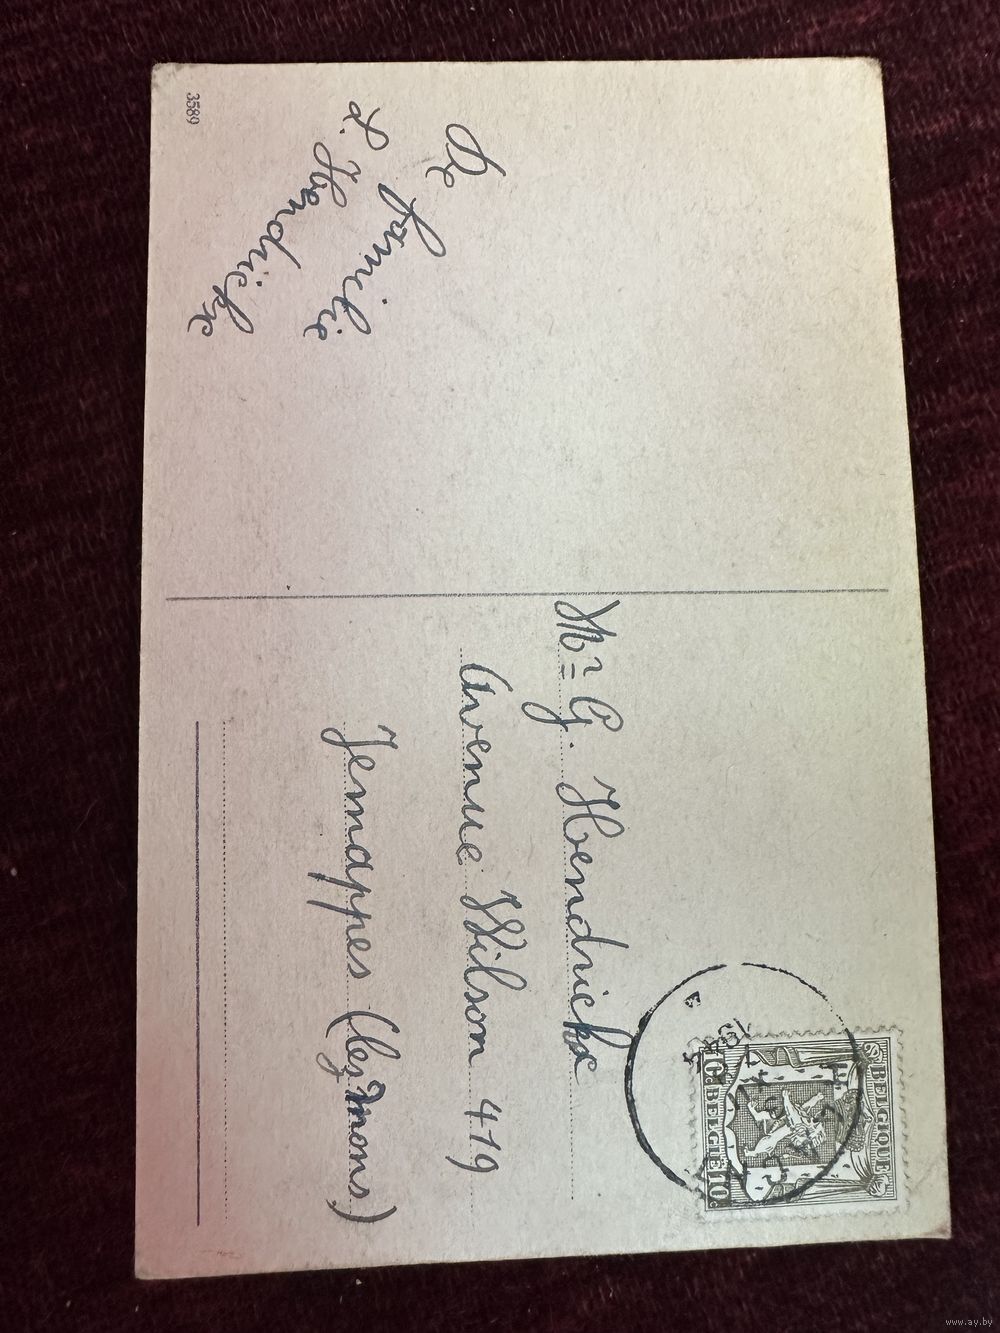 3589
De familie
L. Hendrickx
Mr G. Hendrickx
Avenue Wilson 419
Jemappes (lez mons)
BELGIQUE
10c BELGIË 10c
www.ay.by